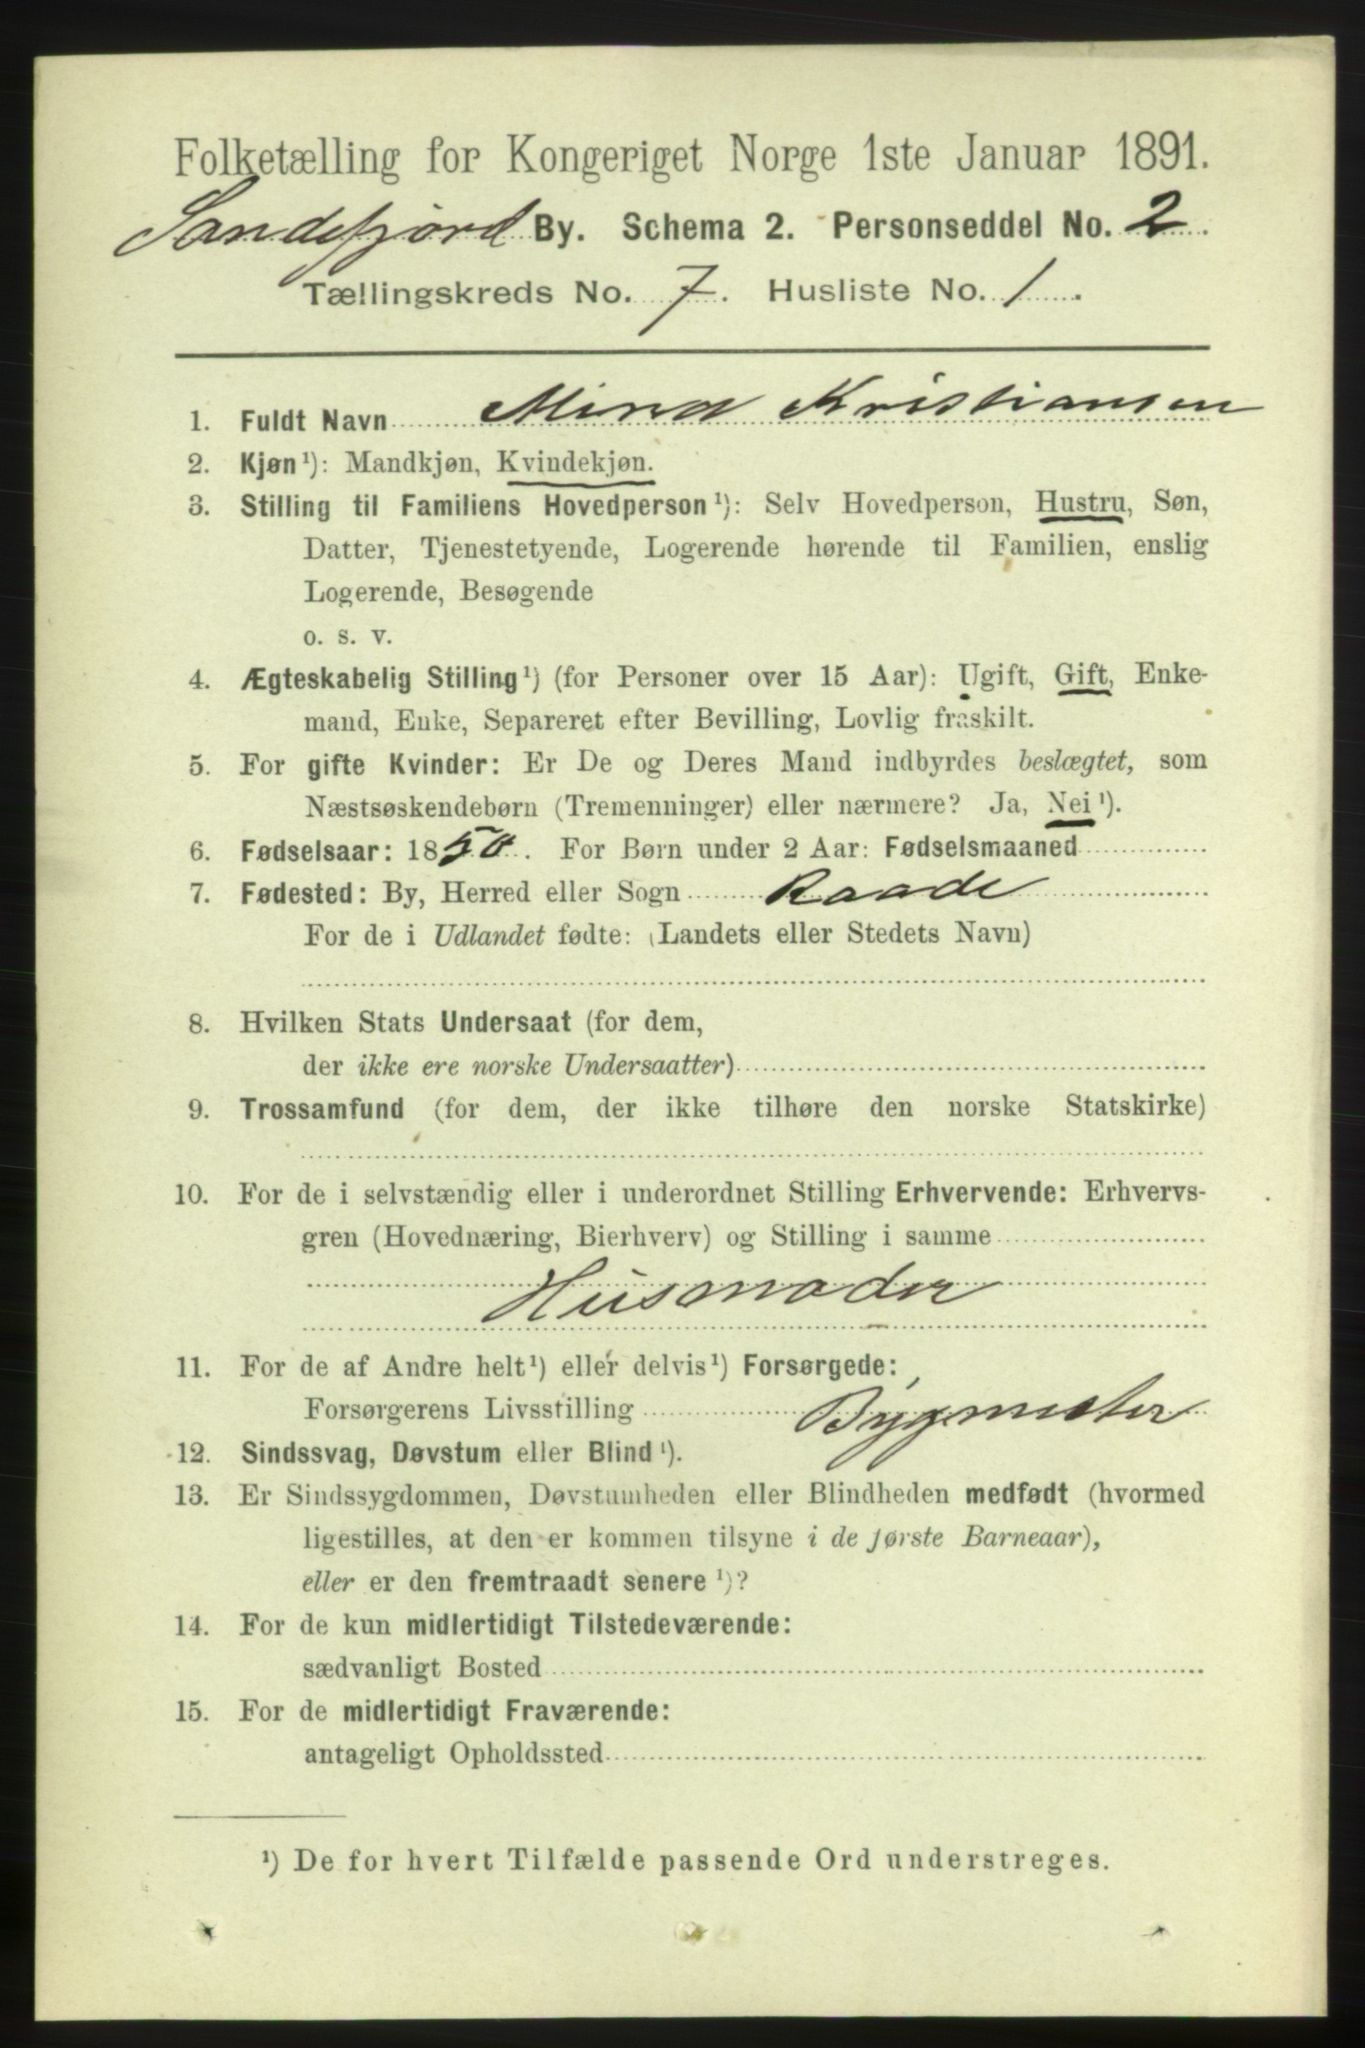 Folketælling for Kongeriget Norge 1ste Januar 1891.
Sandefjord By. Schema 2. Personseddel No. 2.
Tællingskreds No. 7. Husliste No. 1.
1. Fuldt Navn Mina Kristiansen
2. Kjøn¹): Mandkjøn, Kvindekjøn.
3. Stilling til Familiens Hovedperson¹): Selv Hovedperson, Hustru, Søn,
Datter, Tjenestetyende, Logerende hørende til Familien, enslig
Logerende, Besøgende
o. s. v.
4. Ægteskabelig Stilling¹) (for Personer over 15 Aar): Ugift, Gift, Enke-
mand, Enke, Separeret efter Bevilling, Lovlig fraskilt.
5. For gifte Kvinder: Er De og Deres Mand indbyrdes beslægtet, som
Næstsøskendebørn (Tremenninger) eller nærmere? Ja, Nei¹).
6. Fødselsaar: 1850. For Børn under 2 Aar: Fødselsmaaned
7. Fødested: By, Herred eller Sogn Raade
For de i Udlandet fødte: (Landets eller Stedets Navn)
8. Hvilken Stats Undersaat (for dem,
der ikke ere norske Undersaatter)
9. Trossamfund (for dem, der ikke tilhøre den norske Statskirke)
10. For de i selvstændig eller i underordnet Stilling Erhvervende: Erhvervs-
gren (Hovednæring, Bierhverv) og Stilling i samme
Husmoder
11. For de af Andre helt¹) eller delvis¹) Forsørgede:
Forsørgerens Livsstilling Bygmester
12. Sindssvag, Døvstum eller Blind¹).
13. Er Sindssygdommen, Døvstumheden eller Blindheden medfødt (hvormed
ligestilles, at den er kommen tilsyne i de første Barneaar),
eller er den fremtraadt senere¹)?
14. For de kun midlertidigt Tilstedeværende:
sædvanligt Bosted
15. For de midlertidigt Fraværende:
antageligt Opholdssted
¹) De for hvert Tilfælde passende Ord understreges.